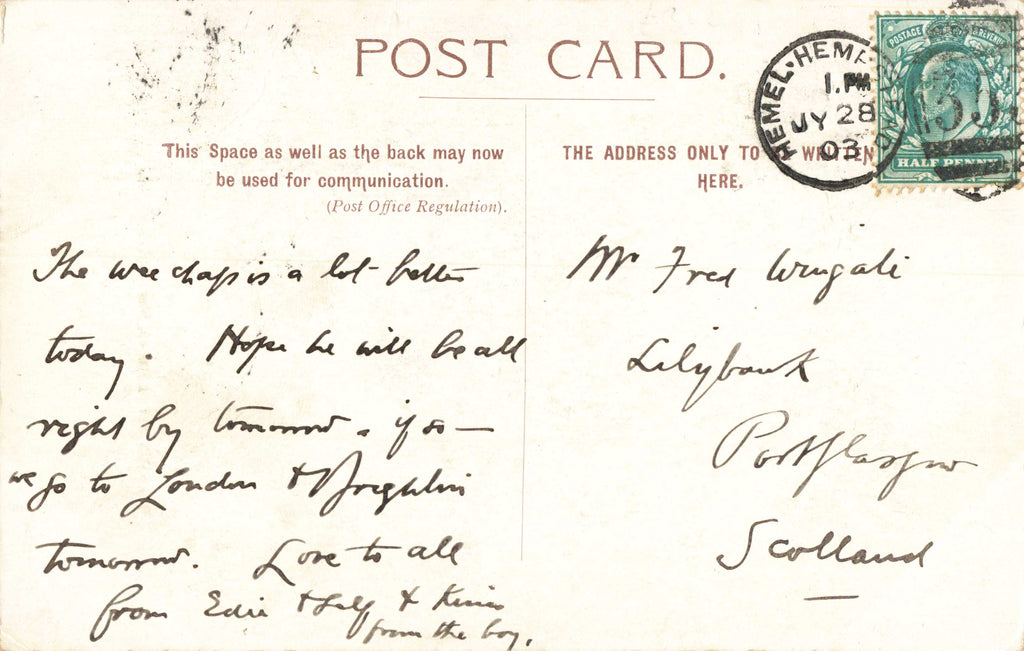 POST CARD.
This Space as well as the back may now
be used for communication.
(Post Office Regulation).
THE ADDRESS ONLY TO WRITTEN
HERE.
HEMEL-HEMP
1.PM
JY 28
03
POSTAGE REVENUE
HALF PENNY
The wee chap is a lot better
today. Hope he will be all
right by tomorrow. if so —
we go to London & Brighton
tomorrow. Love to all
from Edie & Self & Kisses
from the boy.
Mr Fred
Lilybank
Port Glasgow
Scotland